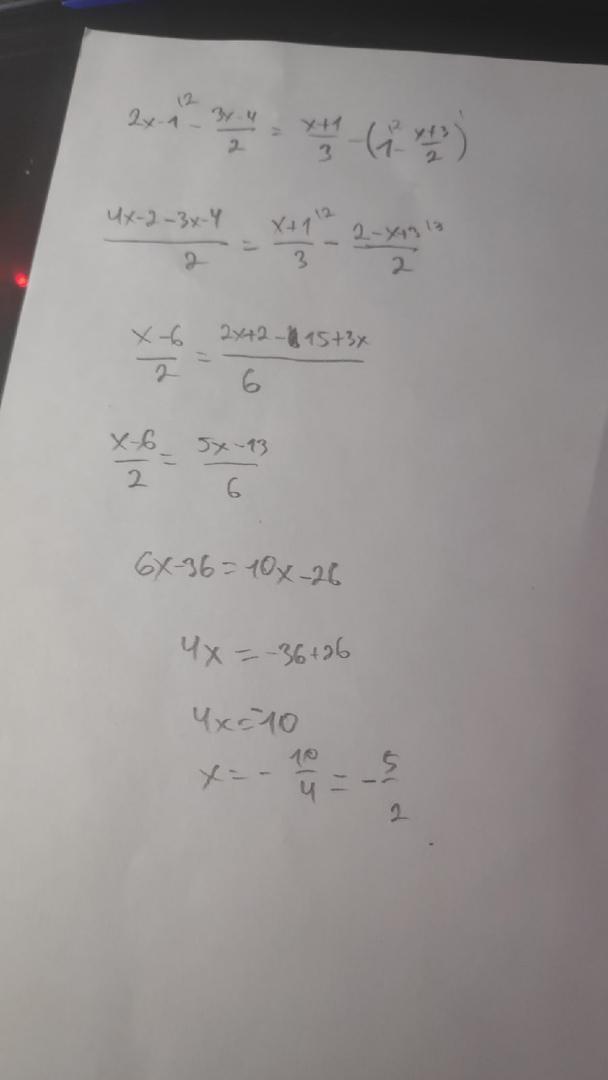 2x-1 |2 - 3x-4/2 = x+1/3 - (1 |2 - x+3/2)
4x-2-3x-4/2 = x+1 |2/3 - 2-x+3 |3/2
x-6/2 = 2x+2-15+3x/6
x-6/2 = 5x-13/6
6x-36=10x-26
4x=-36+26
4x=-10
x=-10/4=-5/2